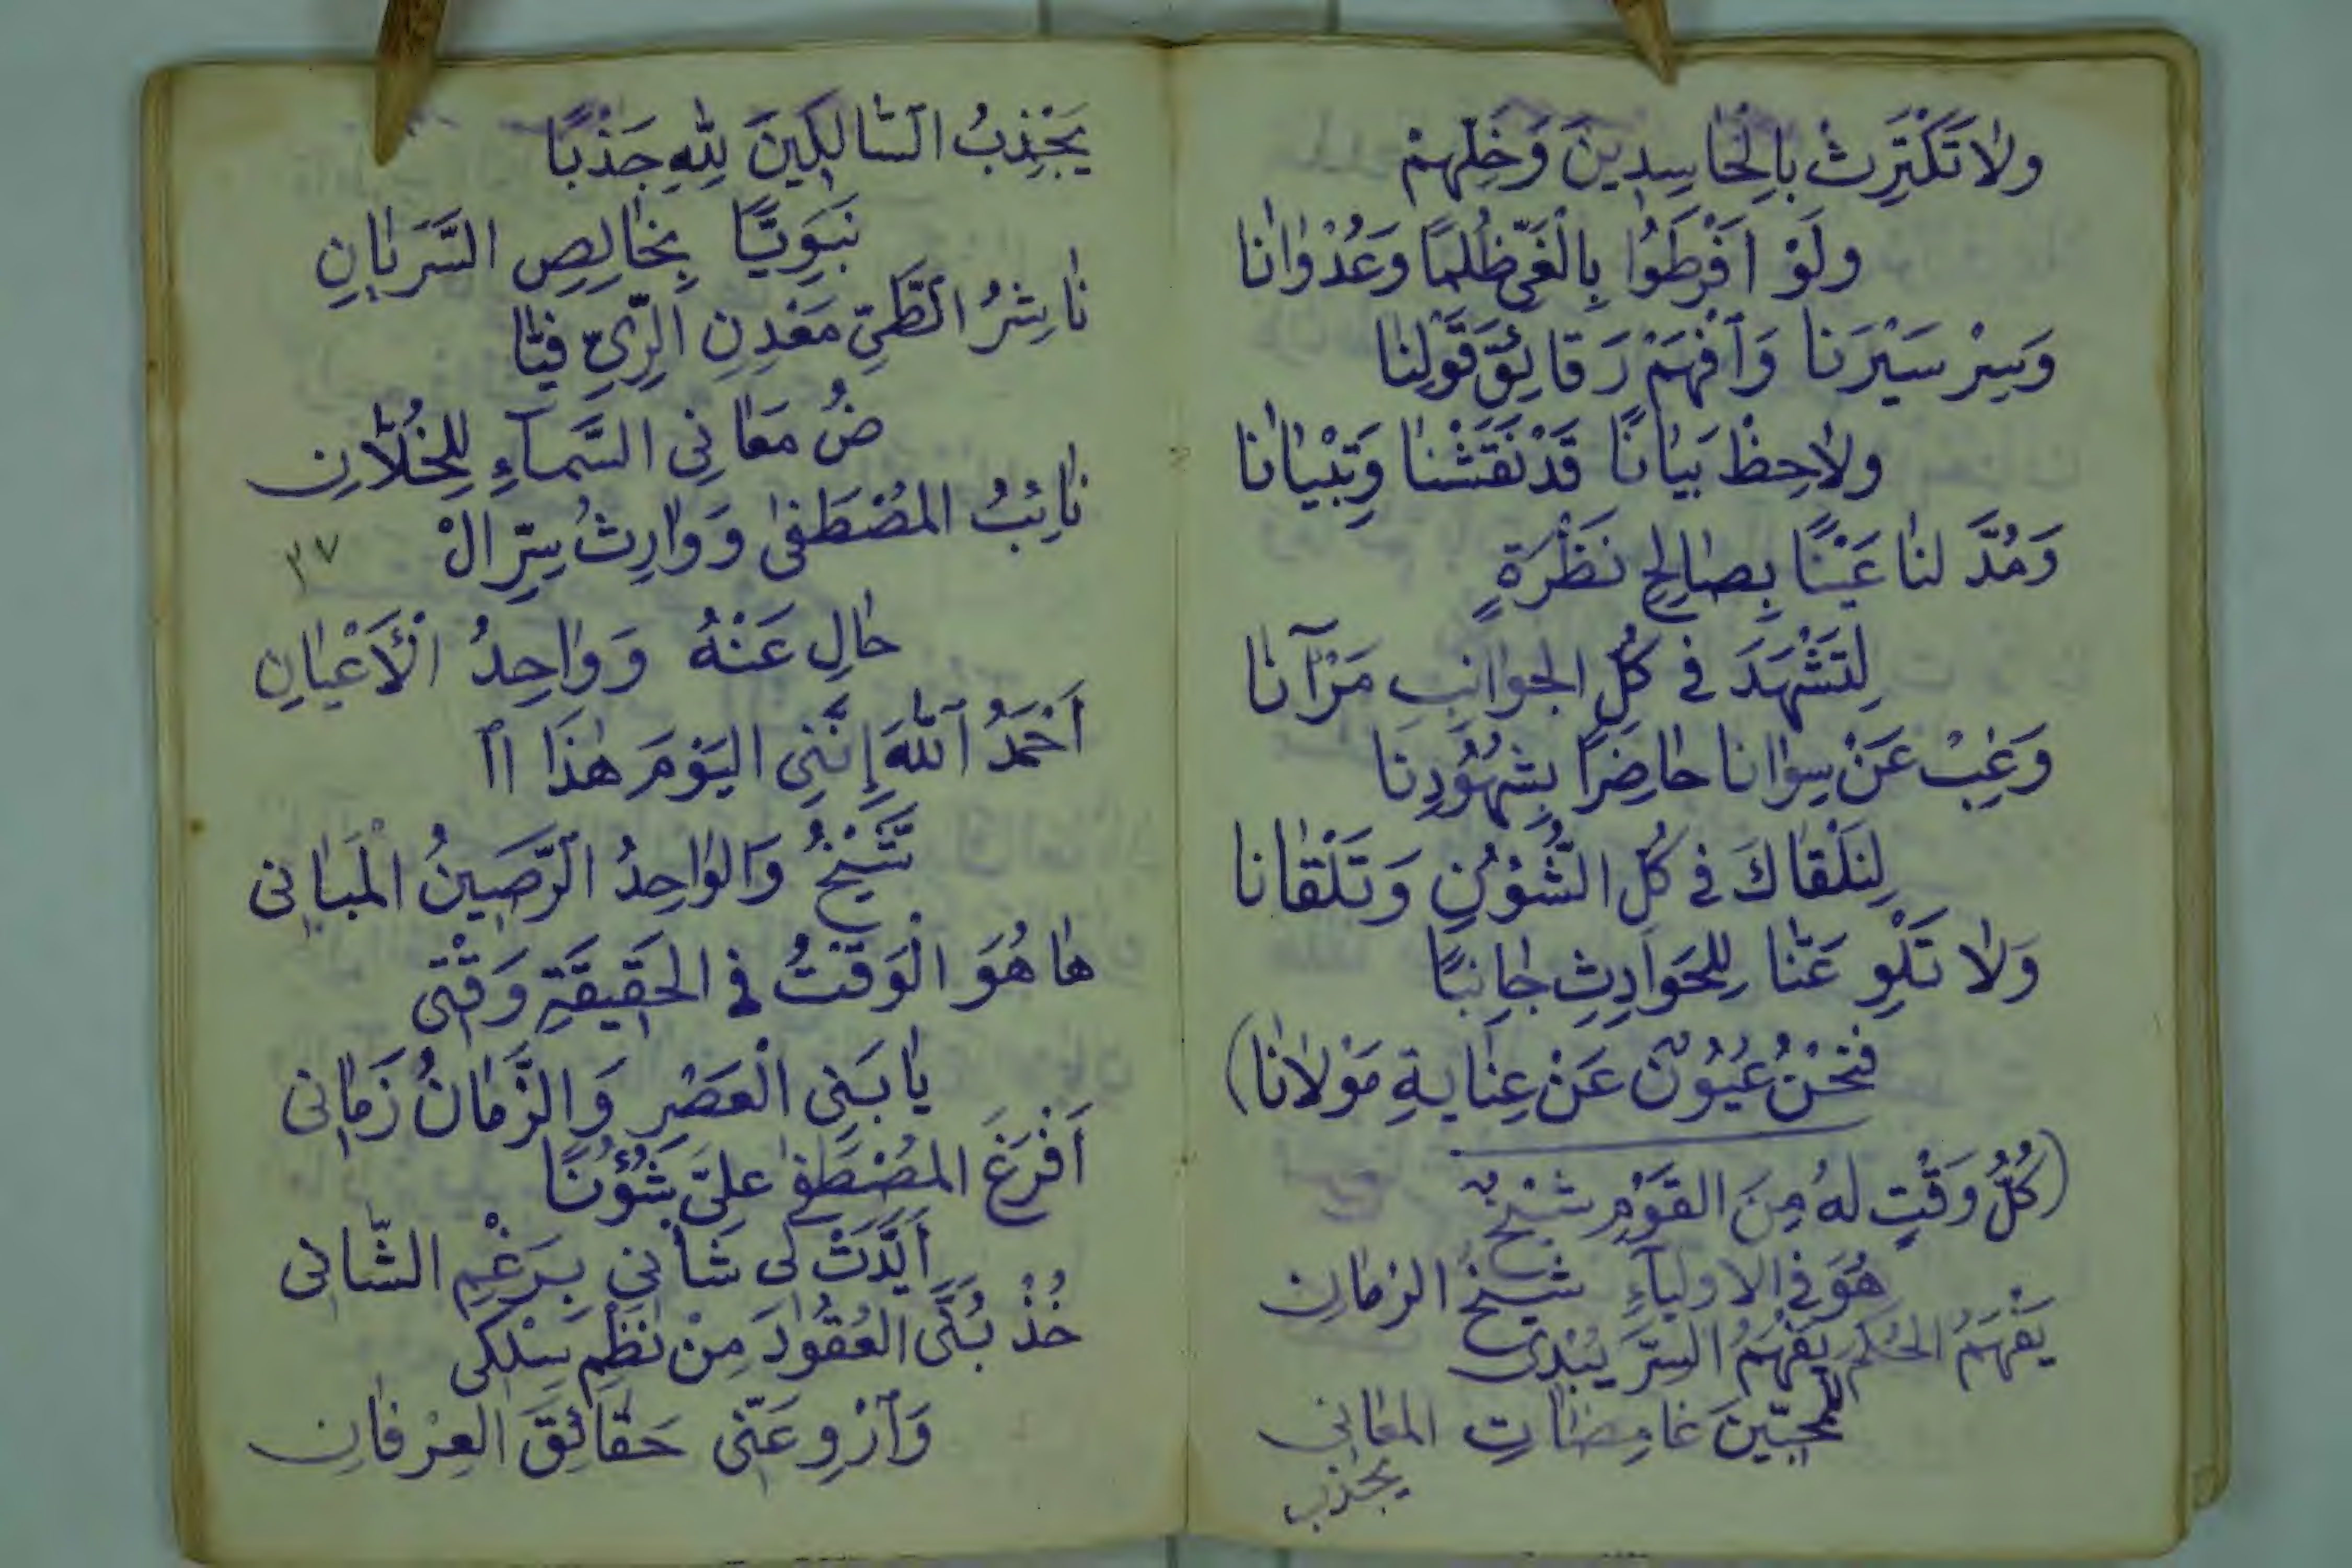 ولَا تَكْتَرِثْ بِالْحَاسِدِينَ وَخَلِّهِمْ
ولَوْ اَفْرَطَوُا بِالْغَيِّ ظُلْمًا وَعُدْوَانَا
وَسِرْ سَيْرَنَا وَاَفْهَمْ رَقَائِقَ قَوْلِنَا
ولَاحِظْ بَيَانًا قَدْ نَقَشْنَا وَتِبْيَانَا
وَمُدَّ لنَا عَيْنًا بِصَالِحِ نَظْرَةٍ
لِتَشْهَدَ فى كُلِّ الجوَانِبِ مَرْآنَا
وَغِبْ عَنْ سِوَانَا حَاضِرًا بِشُهُوُدِنَا
لِنَلْقَاكَ فى كُلِّ الشُّؤُنِ وَتَلْقَانَا
وَلَا تَلْوِ عَنَّا لِلحَوَادِثِ جَانِبًا
فنَحْنُ عُيُوُنٌ عَنْ عِنَايةِ مَوْلَانَا)
(كُلُّ وَقْتٍ لهُ مِنَ القَوْمِ شَيْخٌ
هُوَ فى الاولِيَآءِ شَيْخُ الزمَانِ
يَفْهَمُ الحُكْمَ يَفْهَمُ السِّرَّ يُبْدِى
لِلمُحِبِّينَ غَامِضَاتِ المعَانِى
يجذب
يَجْذِبُ السَّالِكِينَ لِلّٰهِ جَذْبًا
نَبَوِيًّا بِخَالِصِ السَّرَيَانِ
نَاشِرُ الطَّيِّ مَعْدِنِ الرِّيِّ فَيَّا
ضُ مَعَانِى السَّمآءِ لِلخُلَّانِ
نَائِبُ المُصْطَفٰى وَوَارِثُ سِرِّ الْ
٣٧
حَالِ عَنْهُ وَوَاحِدُ الْأَعْيَانِ
اَحْمَدُ اللّٰهَ إِنَّنِى اليَوْمَ هٰذَا ال
شَّيْخُ وَالوَاحِدُ الرَّصِينُ الْمَبَانِى
هَا هُوَ الْوَقْتُ فى الحَقِيقَةِ وَقْتِى
يَا بَنِى الْعَصْرِ وَالزَّمَانُ زَمَانِى
اَفْرَغَ المُصْطَفٰى عليَّ شُؤُنًا
اَيَّدَتْ لِى شَأْنِى بِرَغْمِ الشَّانِى
خُذْ بُنَىَّ العُقُوُدَ مِنْ نَظْمِ سِلْكِى
وَاَرْوِ عَنِّى حَقَائِقَ العِرْفَانِ